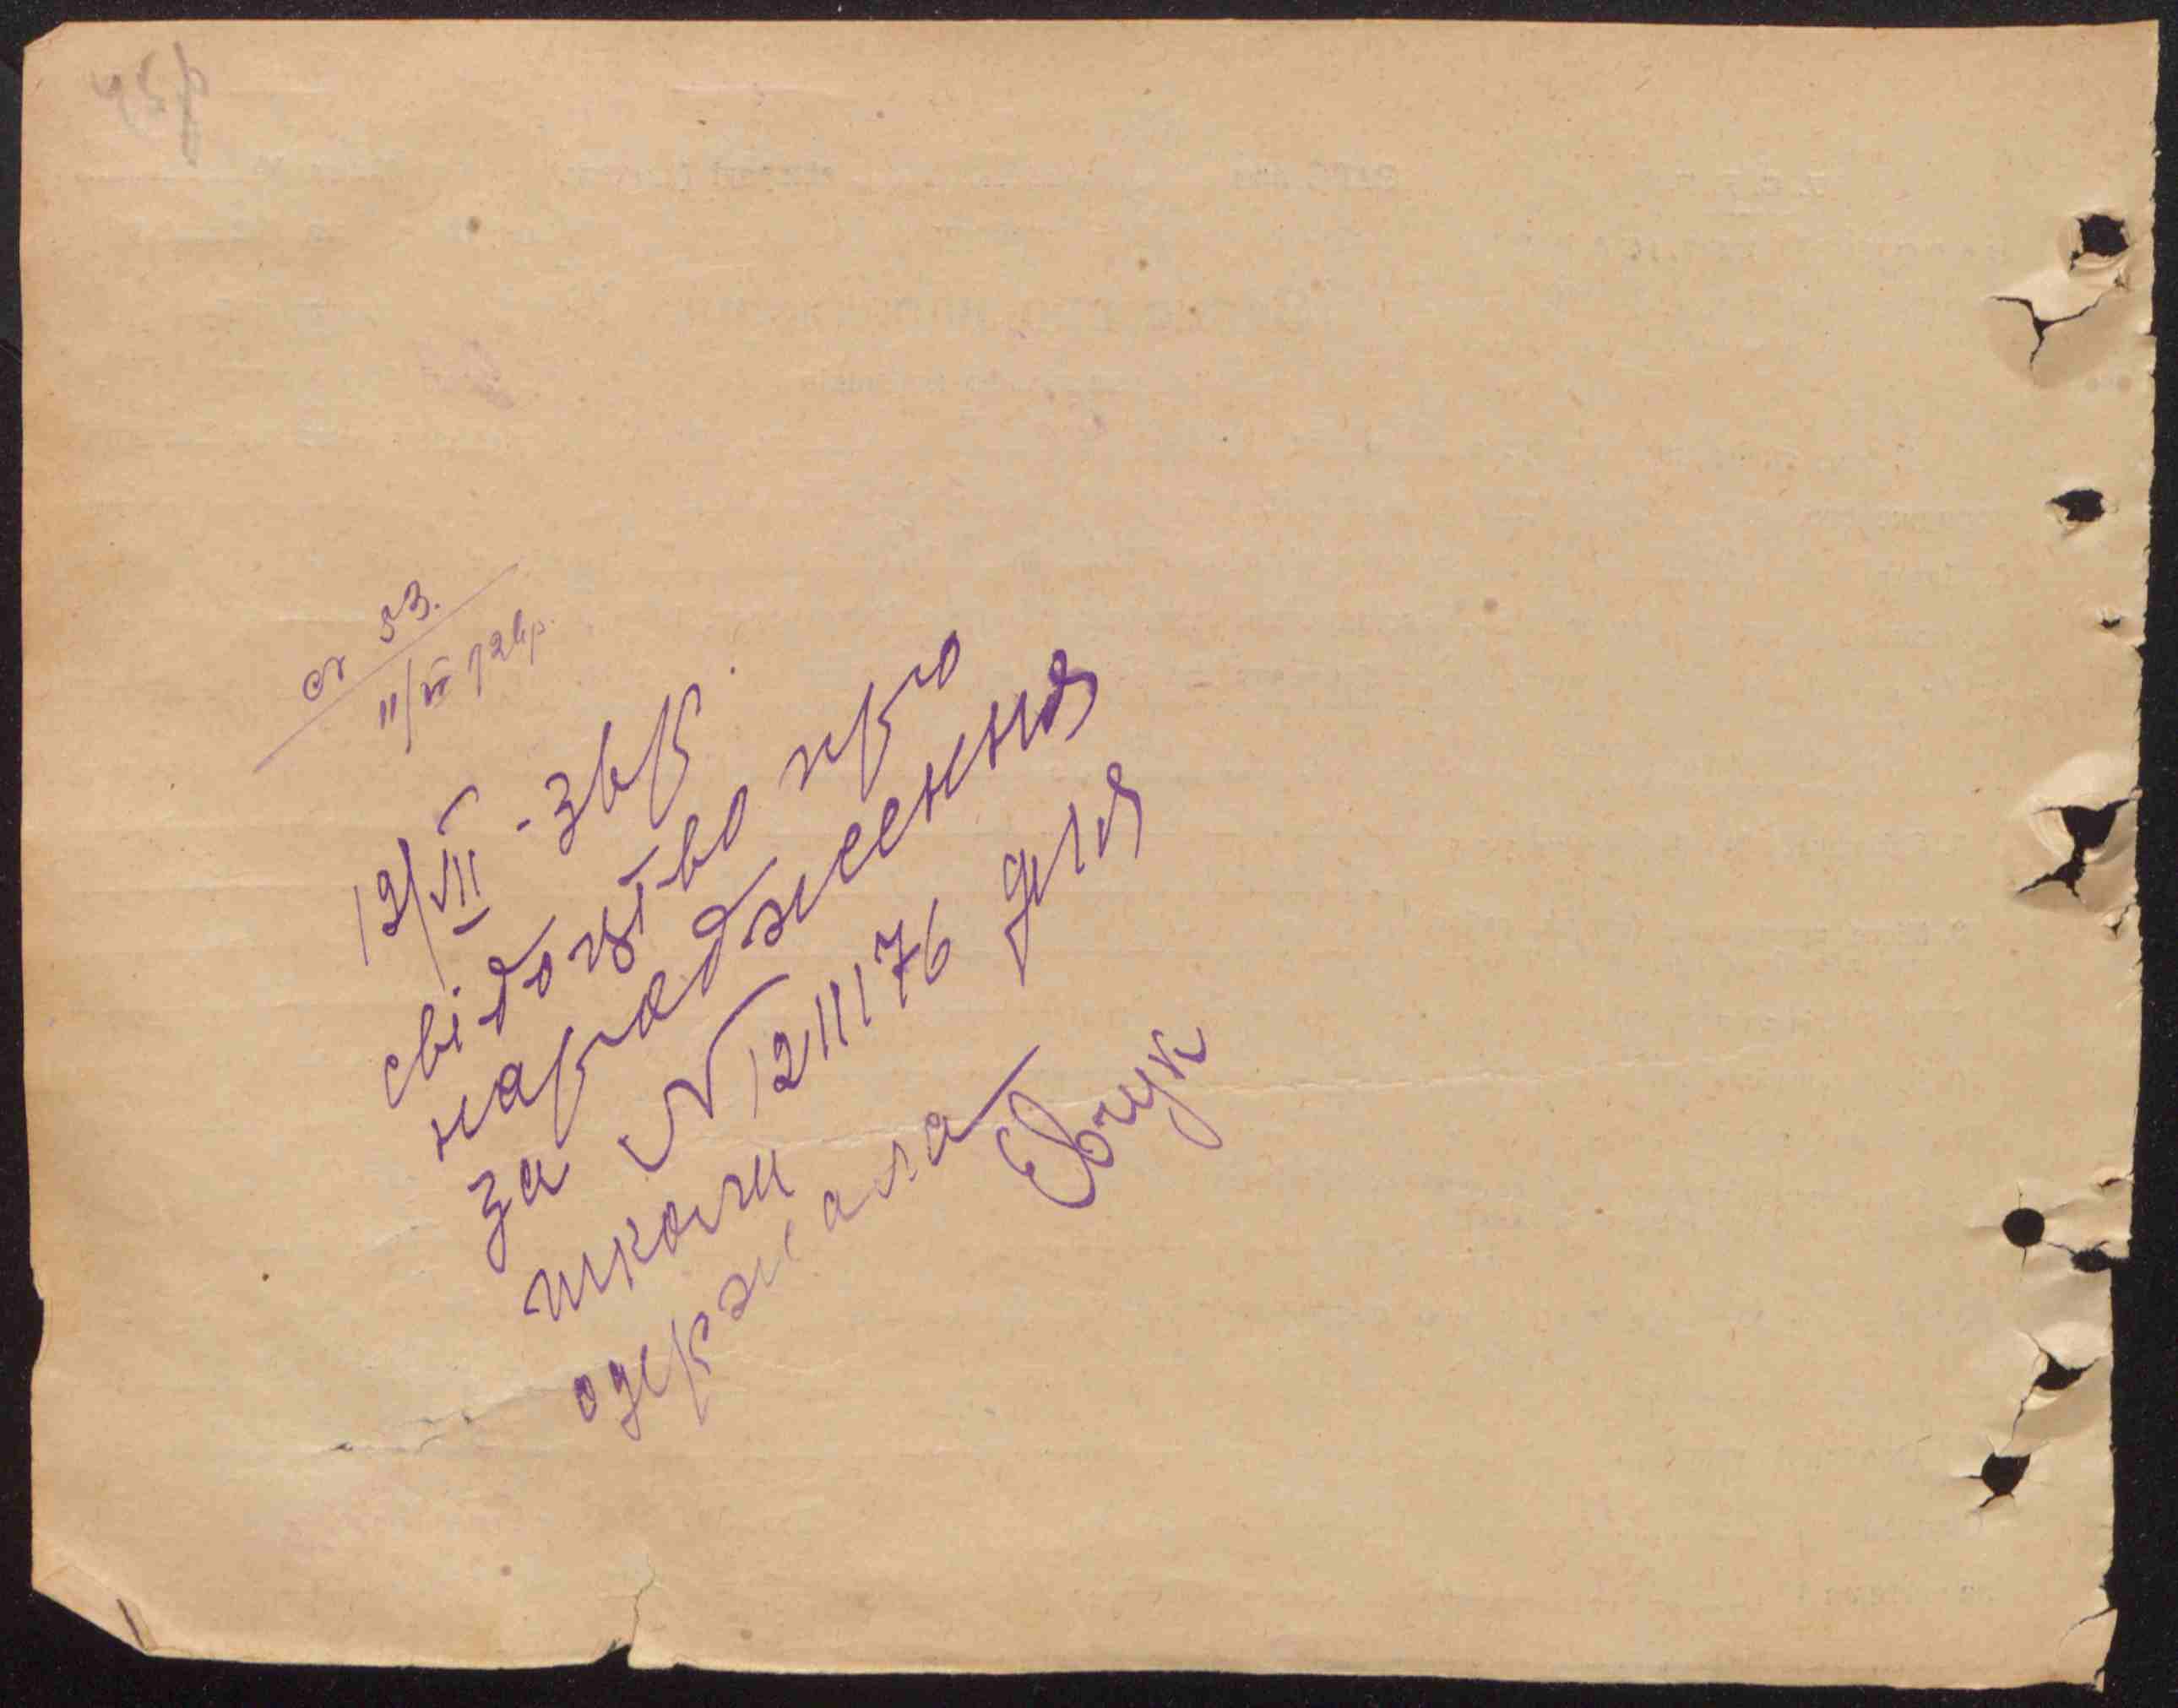 ст 53.
11/VII 724р.
12/VII - 34р.
свідоцтво про
народження
за N 1211176 для
школи
одержала Євчук